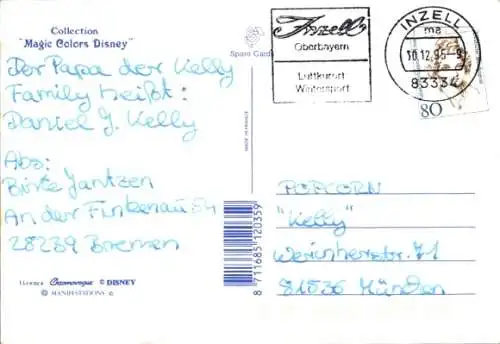 Collection
"Magic Colors Disney"
Der Papa der Kelly
Family heißt:
Daniel J. Kelly
Abs:
Birte Jantzen
An der Finkenau 54
28239 Bremen
Licence Cosmorogue © DISNEY
© MANIFESTATIONS ©
Spare Card
MADE IN FRANCE
8 711685 120359
Inzell
Oberbayern
Luftkurort
Wintersport
INZELL
ma
10.12.95-9
83334
80
POPCORN
"Kelly"
Weinherstr. 71
81536 München